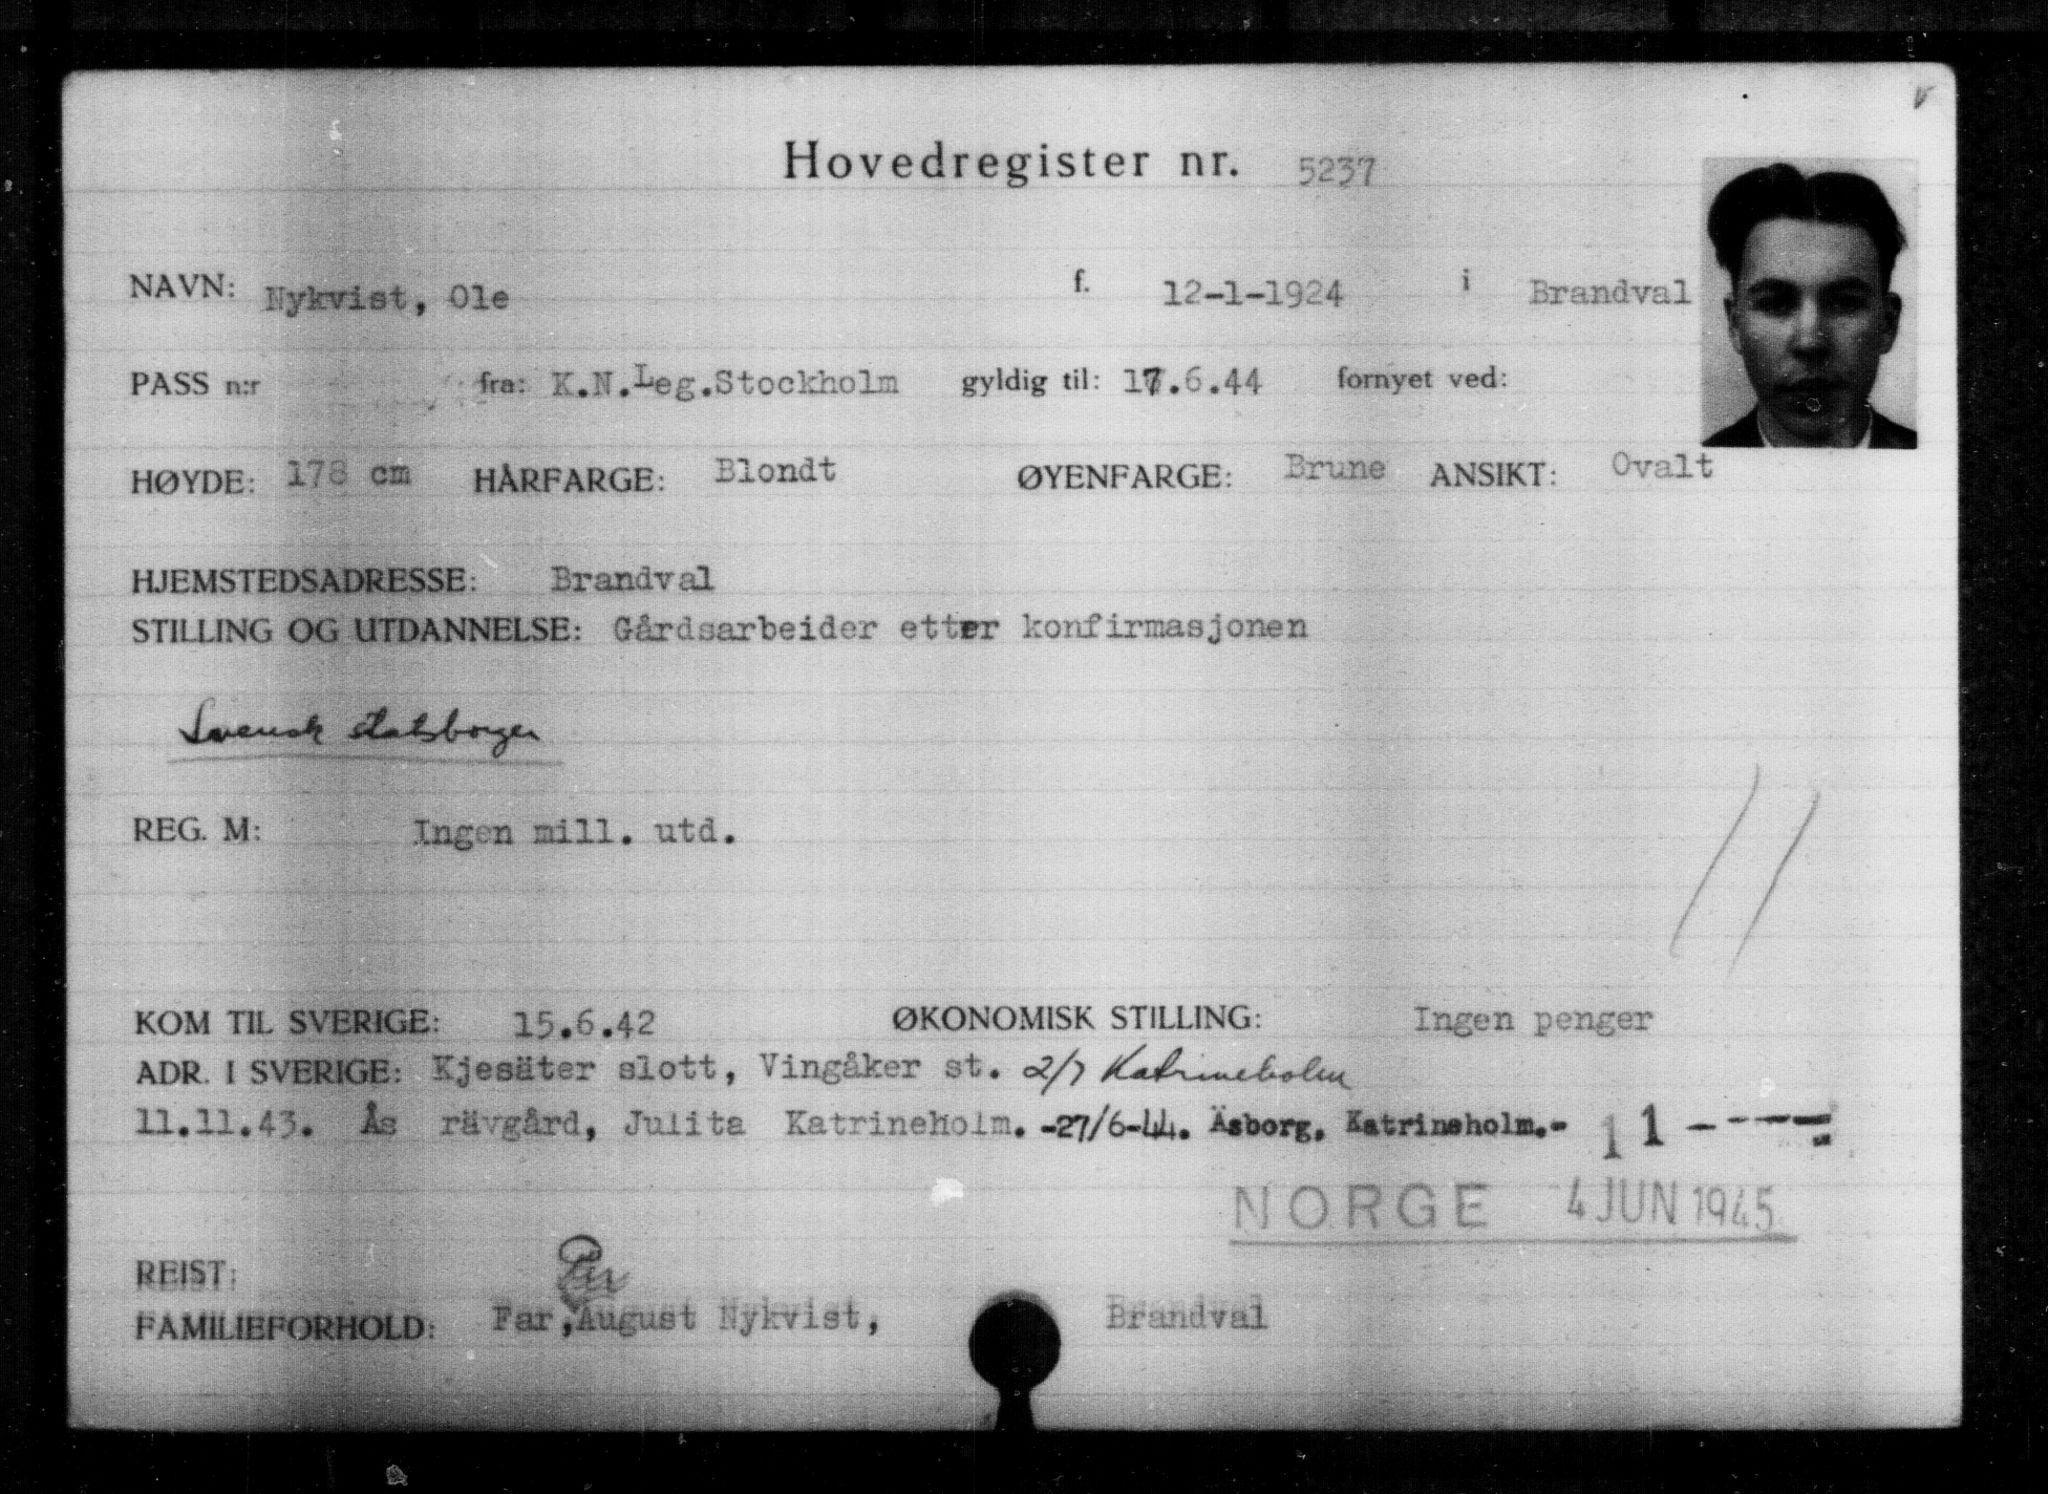 Hovedregister nr. 5237
NAVN: Nykvist, Ole f. 12-1-1924 i Brandval
PASS n:r fra: K.N.Leg.Stockholm gyldig til: 17.6.44 fornyet ved:
HØYDE: 178 cm HÅRFARGE: Blondt ØYENFARGE: Brune ANSIKT: Ovalt
HJEMSTEDSADRESSE: Brandval
STILLING OG UTDANNELSE: Gårdsarbeider etter konfirmasjonen
Svensk statsborger
REG. M: Ingen mill. utd.
KOM TIL SVERIGE: 15.6.42 ØKONOMISK STILLING: Ingen penger
ADR. I SVERIGE: Kjesäter slott, Vingåker st. 2/7 Katrineholm
11.11.43. Ås rävgård, Julita Katrineholm. -27/6-44. Äsborg, Katrineholm.- 11 -----
NORGE 4 JUN 1945
REIST:
FAMILIEFORHOLD: Far, August Nykvist, Brandval